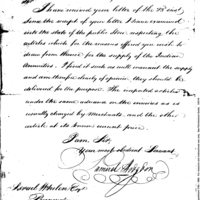 I have received your letter of the 28 inst
Since the receipt of your letter I have examined
into the state of the public Store respecting the
articles which for the reasons offered you wish to
draw from thence for the supply of the Indian
Annuities. I find it such as will warrant the supply
and am therefore clearly of opinion they should be
delivered for the purpose. The imported articles
under the same advance on the invoice as is
usually charged by Merchants, and the other
article at its known current price.
I am, Sir,
Your most obedient Servant
Samuel Hodgdon
Israel Whelen Esq